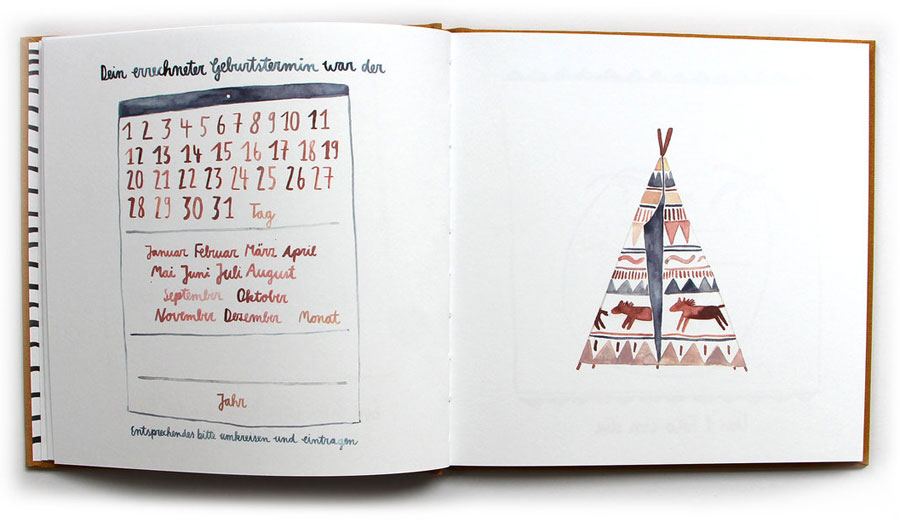 Dein errechneter Geburtstermin war der
1 2 3 4 5 6 7 8 9 10 11
12 13 14 15 16 17 18 19
20 21 22 23 24 25 26 27
28 29 30 31 Tag
Januar Februar März April
Mai Juni Juli August
September Oktober
November Dezember Monat
Jahr
Entsprechendes bitte umkreisen und eintragen